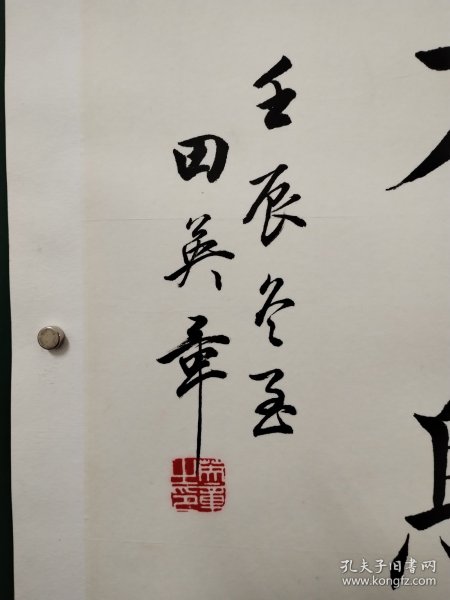 壬辰冬至
田英章
英章
之印
孔夫子旧书网
www.kongfz.com